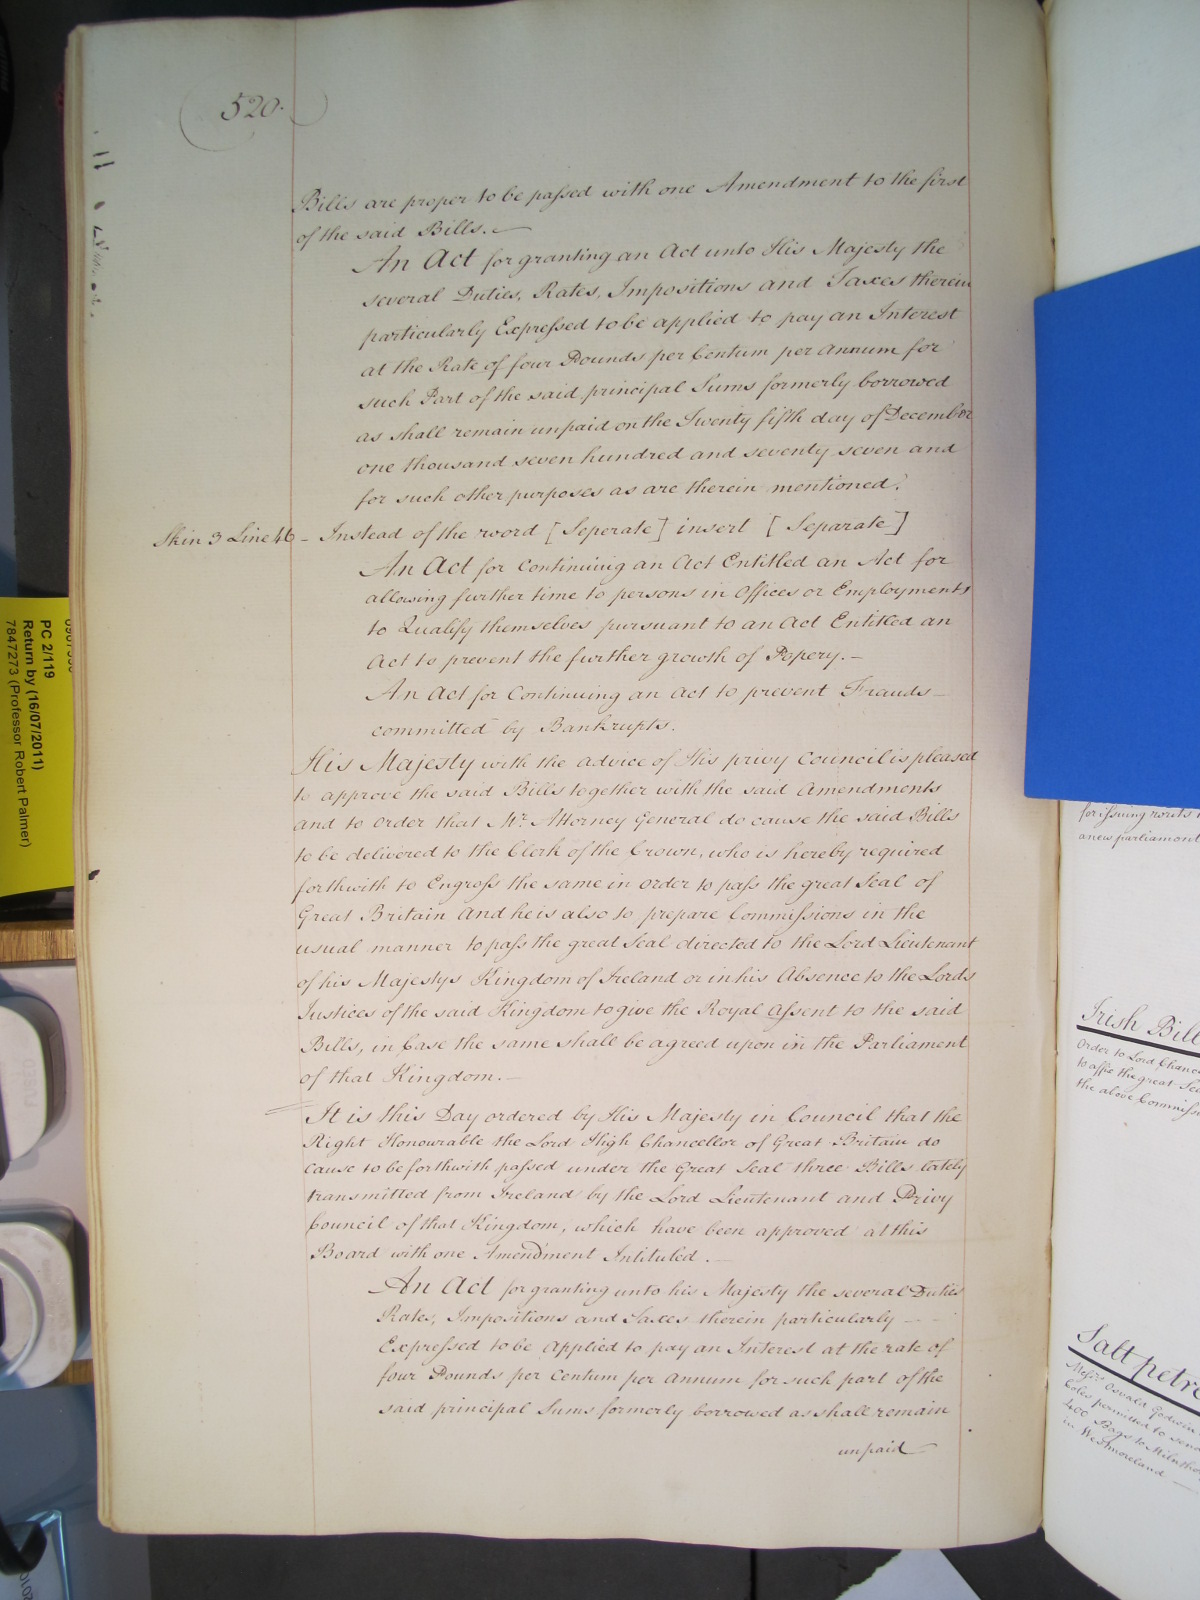 520.
Bills are proper to be passed with one Amendment to the first
of the said Bills.
An Act for granting an Act unto His Majesty the
several Duties, Rates, Impositions and Taxes therein
particularly Expressed to be applied to pay an Interest
at the Rate of four Pounds per Centum per Annum for
such Part of the said principal Sums formerly borrowed
as shall remain unpaid on the Twenty fifth day of December
one thousand seven hundred and seventy seven and
for such other purposes as are therein mentioned.
Skin 3 Line 46 - Instead of the word [Seperate] insert [Separate]
An Act for Continuing an Act Entitled an Act for
allowing further time to persons in Offices or Employments
to Qualify themselves pursuant to an Act Entitled an
Act to prevent the further growth of Popery.-
An Act for Continuing an Act to prevent Frauds-
committed by Bankrupts.
His Majesty with the advice of His privy Council is pleased
to approve the said Bills together with the said Amendments
and to order that Mr. Attorney General do cause the said Bills
to be delivered to the Clerk of the Crown, who is hereby required
forthwith to Engross the same in order to pass the great Seal of
Great Britain And he is also to prepare Commissions in the
usual manner to pass the great Seal directed to the Lord Lieutenant
of his Majestys Kingdom of Ireland or in his Absence to the Lords
Justices of the said Kingdom to give the Royal Assent to the said
Bills, in Case the same shall be agreed upon in the Parliament
of that Kingdom.-
It is this Day ordered by His Majesty in Council that the
Right Honourable the Lord High Chancellor of Great Britain do
cause to be forthwith passed under the Great Seal three Bills lately
transmitted from Ireland by the Lord Lieutenant and Privy
Council of that Kingdom, which have been approved at this
Board with one Amendment Intituled.-
An Act for granting unto his Majesty the several Duties
Rates, Impositions and Taxes therein particularly
Expressed to be Applied to pay an Interest at the rate of
four Pounds per Centum per Annum for such part of the
said principal Sums formerly borrowed as shall remain
unpaid
PC 2/119
Return by (16/07/2011)
7847273 (Professor Robert Palmer)
for issuing writs
a new parliament
Irish Bill
Order to Lord Chanc
to affix the great Sea
the above Commiss
Saltpetre
Messrs Osvald Godwin
Coles permitted to send
400 Bags to Milnthor
in Westmoreland